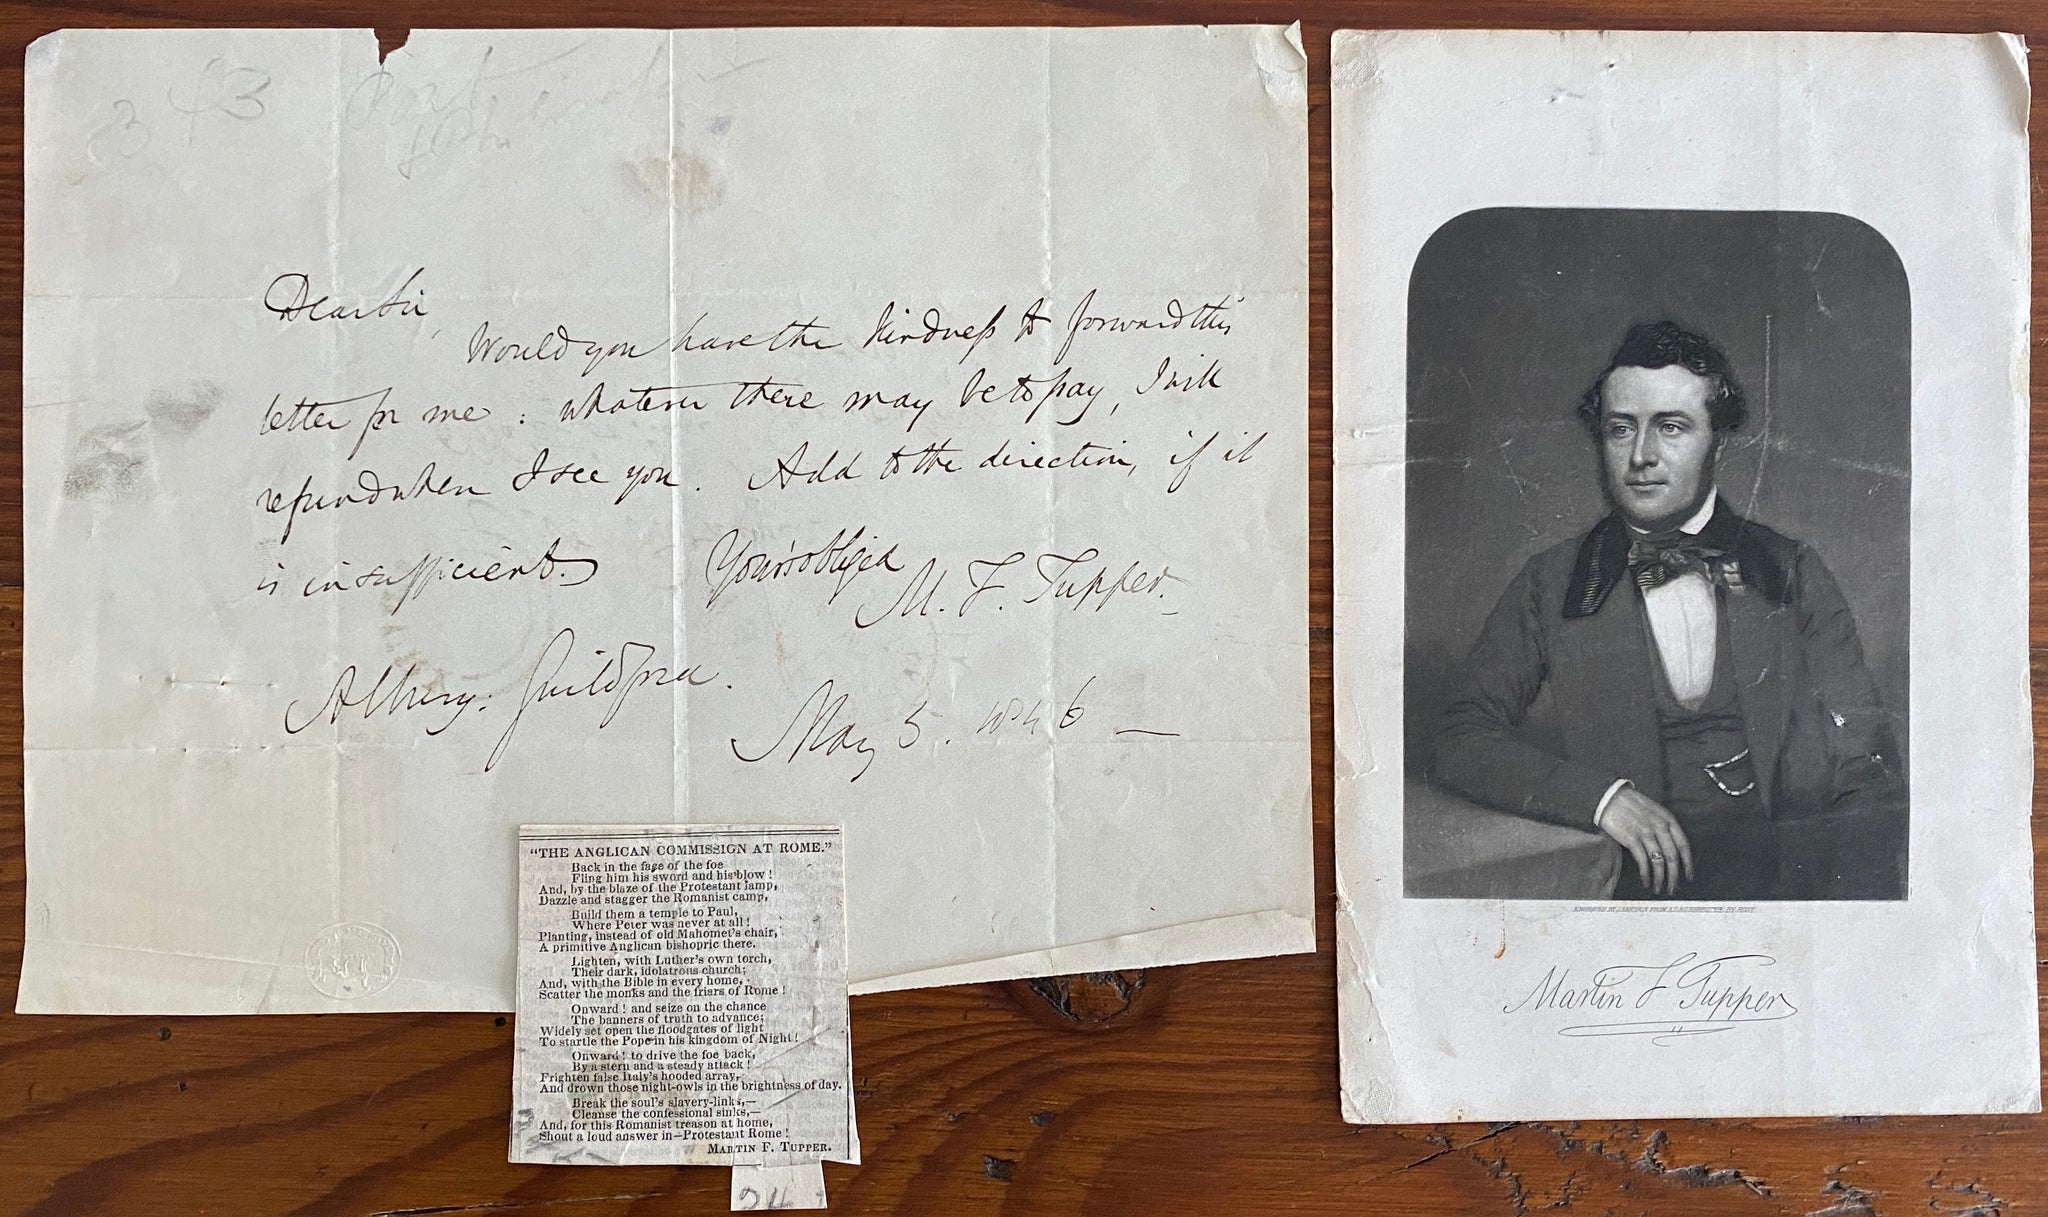 343
Dear Sir,
Would you have the kindness to forward this
letter for me : whatever there may be to pay, I will
refund when I see you. Add to the direction, if it
is insufficient.
Your's obliged
M. F. Tupper.
Albury: Guildford.
May 5. 1846 —
"THE ANGLICAN COMMISSION AT ROME."
Back in the face of the foe
Fling him his sword and his blow!
And, by the blaze of the Protestant lamp,
Dazzle and stagger the Romanist camp,
Build them a temple to Paul,
Where Peter was never at all!
Planting, instead of old Mahomet's chair,
A primitive Anglican bishopric there.
Lighten, with Luther's own torch,
Their dark, idolatrous church;
And, with the Bible in every home,
Scatter the monks and the friars of Rome!
Onward! and seize on the chance
The banners of truth to advance;
Widely set open the floodgates of light
To startle the Pope in his kingdom of Night!
Onward! to drive the foe back,
By a stern and a steady attack!
Frighten false Italy's hooded array,
And drown those night-owls in the brightness of day.
Break the soul's slavery-links,—
Cleanse the confessional sinks,—
And, for this Romanist treason at home,
Shout a loud answer in—Protestant Rome!
MARTIN F. TUPPER.
24
ENGRAVED BY FROM A DAGUERREOTYPE BY
Martin F Tupper